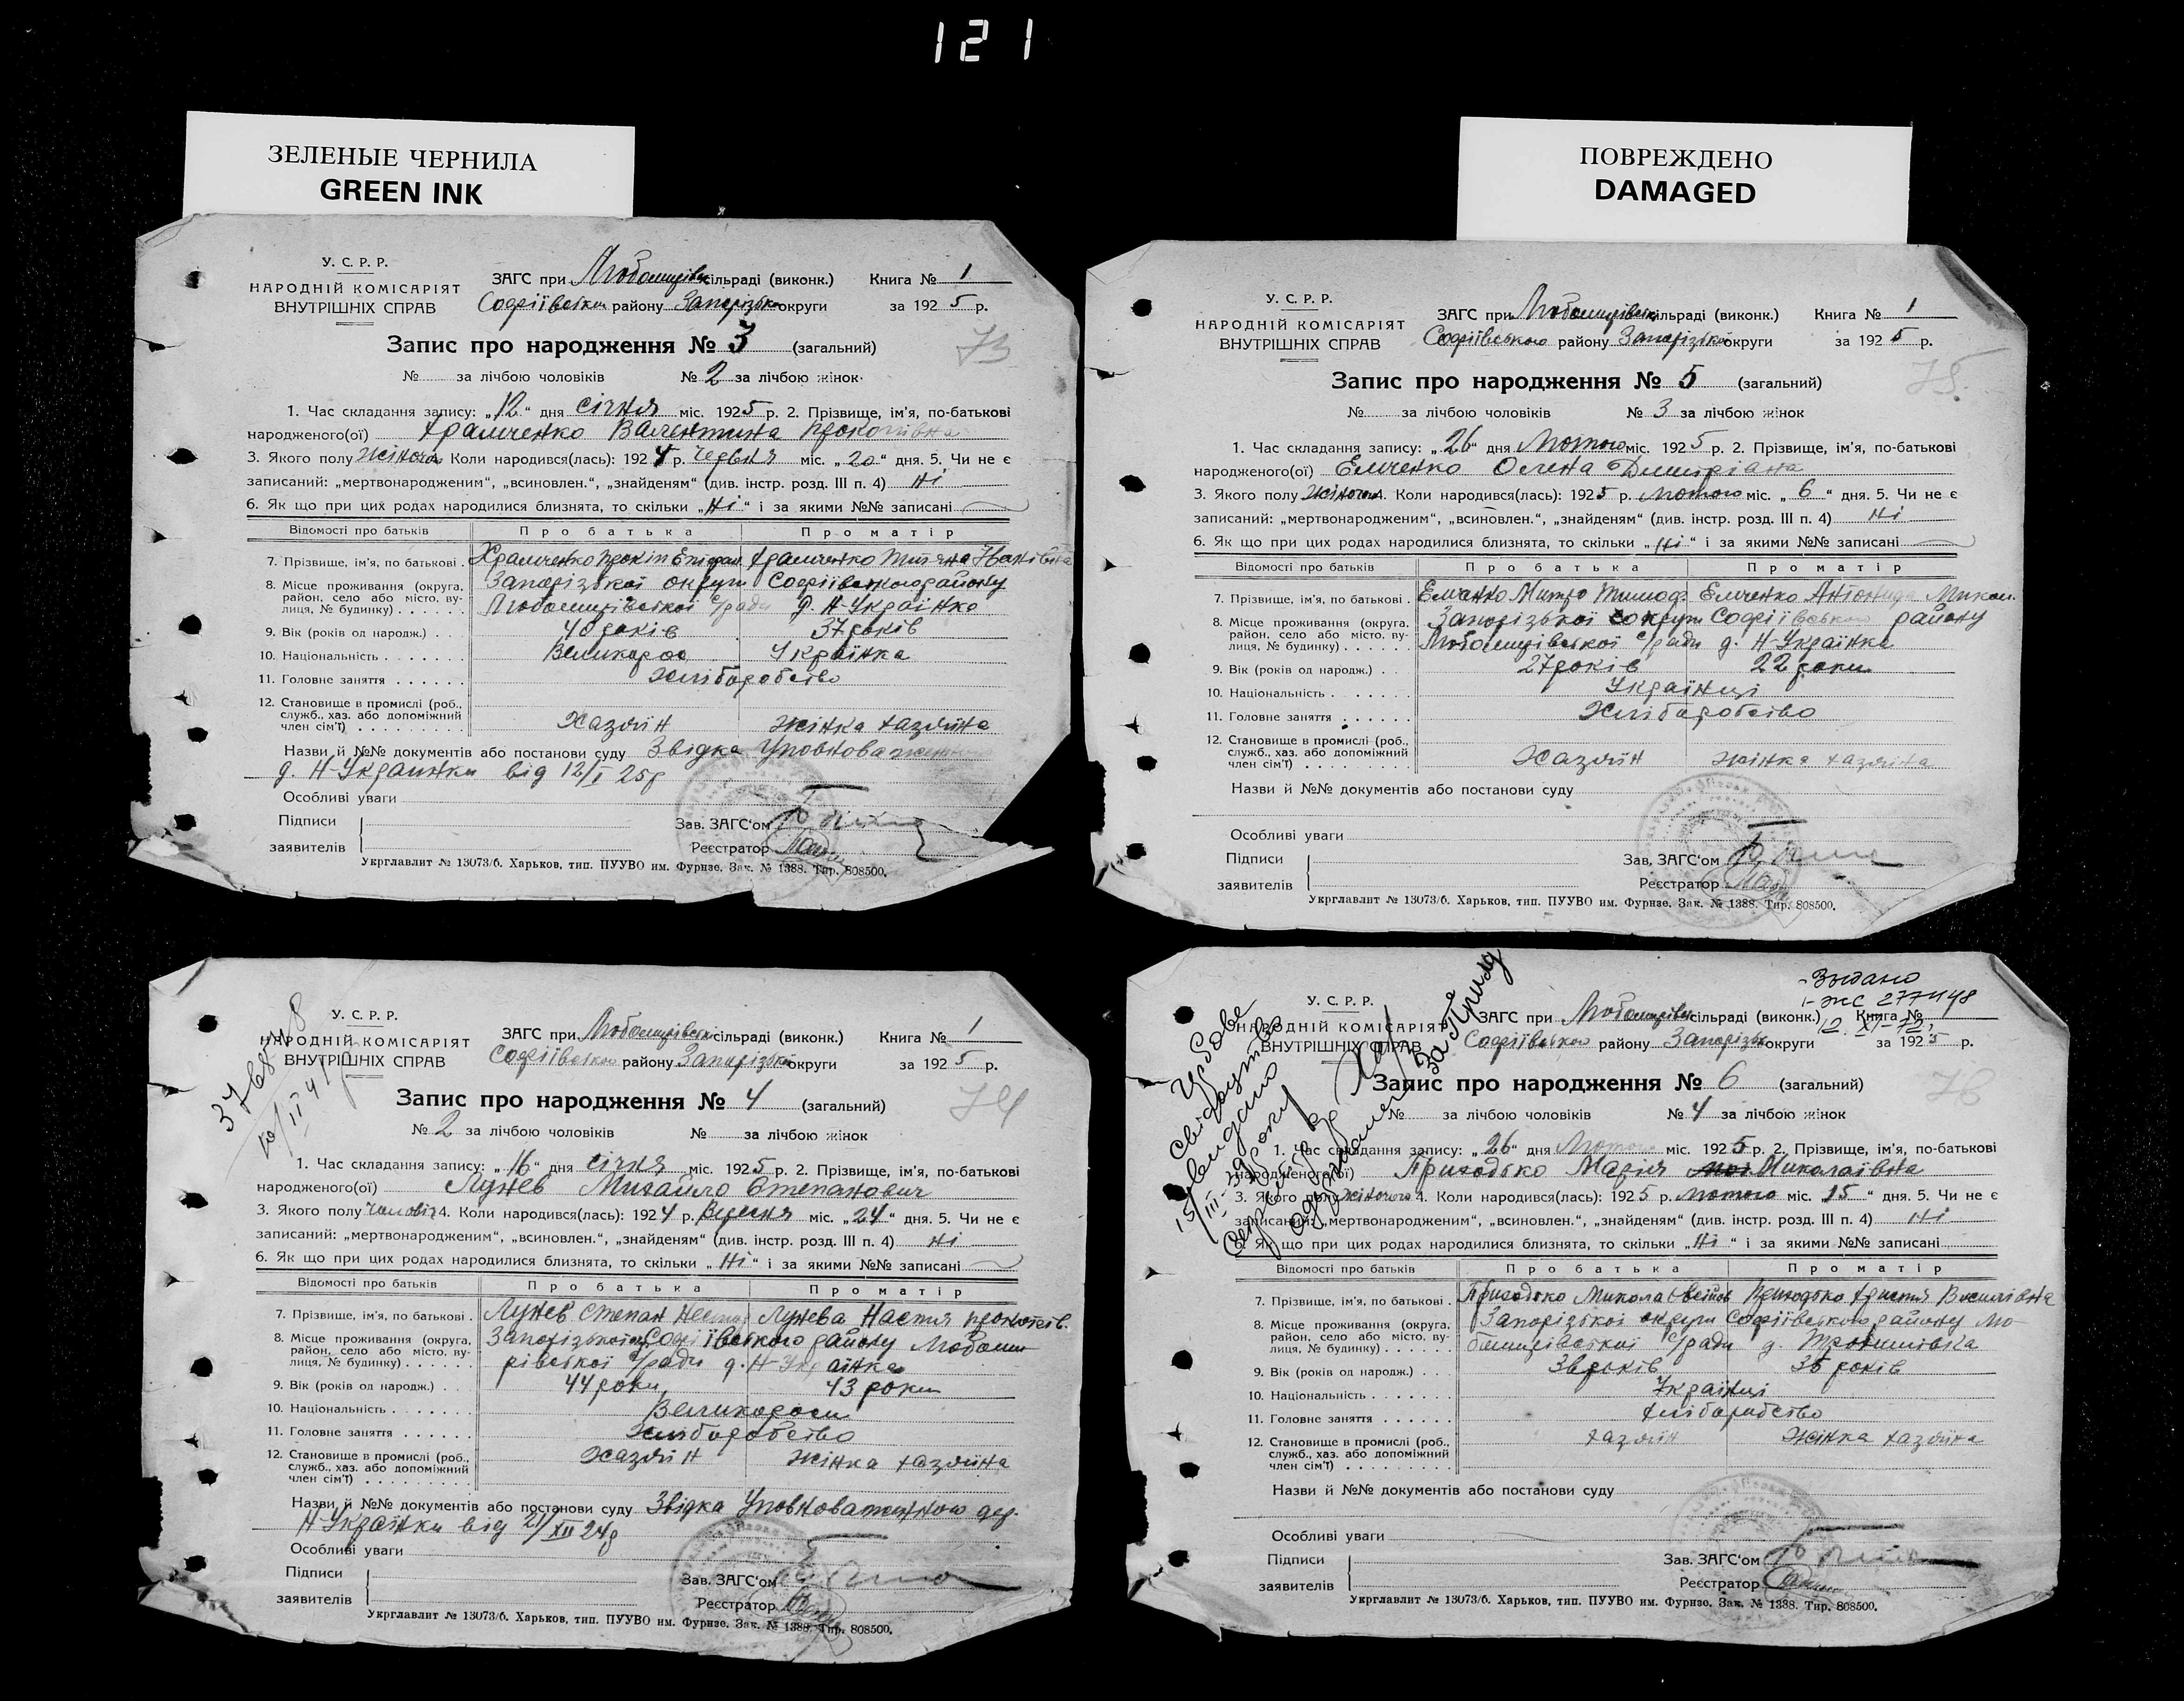 121
ЗЕЛЕНЫЕ ЧЕРНИЛА
GREEN INK
У. С. Р. Р.
НАРОДНІЙ КОМІСАРІЯТ
ВНУТРІШНІХ СПРАВ
ЗАГС при Любомирівск сільраді (виконк.) Книга № 1
Софіївськ району Запорізько округи за 1925 р.
Запис про народження № 3 (загальний)
73
№ за лічбою чоловіків № 2 за лічбою жінок
1. Час складання запису: „12“ дня січня міс. 1925 р. 2. Прізвище, ім'я, по-батькові
народженого(ої) Храмченко Валентина Прокопівна
3. Якого полу жіноч Коли народився(лась): 1924 р. червня міс. „20“ дня. 5. Чи не є
записаний: „мертвонародженим“, „всиновлен.“, „знайденям“ (див. інстр. розд. III п. 4) Ні
6. Як що при цих родах народилися близнята, то скільки „Ні“ і за якими №№ записані
Відомості про батьків Про батька Про матір
7. Прізвище, ім'я, по батькові . Храмченко Прокіп Епіфан Храмченко Титяна Іванівна
8. Місце проживання (округа, район, село або місто, вулиця, № будинку) . . . . . Запорізької округи Софіївського району
Любомирівської с/ради д. Н-Українка
9. Вік (років од народж.) . . 40 років 37 років
10. Національність . . . . . . . Великорос Українка
11. Головне заняття . . . . . . Хліборобство
12. Становище в промислі (роб., служб., хаз. або допоміжний член сім'ї) . . . . . . . . . Хазяїн жінка хазяїна
Назви й №№ документів або постанови суду Звідка Уповноваженного
д. Н-Украинки від 12/I 25р
Особливі уваги
Підписи
заявителів
Зав. ЗАГС'ом
Реєстратор
Укрглавлит № 13073/6. Харьков, тип. ПУУВО им. Фурнзе. Зак. № 1388. Тир. 808500.
ПОВРЕЖДЕНО
DAMAGED
У. С. Р. Р.
НАРОДНІЙ КОМІСАРІЯТ
ВНУТРІШНІХ СПРАВ
ЗАГС при Любомирівськ сільраді (виконк.) Книга № 1
Софіївського району Запорізької округи за 1925 р.
Запис про народження № 5 (загальний)
75
№ за лічбою чоловіків № 3 за лічбою жінок
1. Час складання запису: „26“ дня Лютого міс. 1925 р. 2. Прізвище, ім'я, по-батькові
народженого(ої) Емченко Олена Дмитріана
3. Якого полу жіночого 4. Коли народився(лась): 1925 р. лютого міс. „6“ дня. 5. Чи не є
записаний: „мертвонародженим“, „всиновлен.“, „знайденям“ (див. інстр. розд. III п. 4) Ні
6. Як що при цих родах народилися близнята, то скільки „Ні“ і за якими №№ записані
Відомості про батьків Про батька Про матір
7. Прізвище, ім'я, по батькові . Емченко Митро Тимоф. Емченко Антонида Микол.
8. Місце проживання (округа, район, село або місто, вулиця, № будинку) . . . . . Запорізької округи Софіївського району
Любомирівської с/ради д. Н-Українка
9. Вік (років од народж.) . . 27 років 22 роки
10. Національність . . . . . . . Українці
11. Головне заняття . . . . . . Хліборобство
12. Становище в промислі (роб., служб., хаз. або допоміжний член сім'ї) . . . . . . . . . Хазяїн жінка хазяїна
Назви й №№ документів або постанови суду
Особливі уваги
Підписи
заявителів
Зав. ЗАГС'ом
Реєстратор
Укрглавлит № 13073/6. Харьков, тип. ПУУВО им. Фурнзе. Зак. № 1388. Тир. 808500.
У. С. Р. Р.
НАРОДНІЙ КОМІСАРІЯТ
ВНУТРІШНІХ СПРАВ
ЗАГС при Любомирівськ сільраді (виконк.) Книга № 1
Софіївсько району Запорізької округи за 1925 р.
Запис про народження № 4 (загальний)
74
№ 2 за лічбою чоловіків № за лічбою жінок
1. Час складання запису: „16“ дня січня міс. 1925 р. 2. Прізвище, ім'я, по-батькові
народженого(ої) Лунев Михайло Степанович
3. Якого полу чоловіч 4. Коли народився(лась): 1924 р. Вересня міс. „24“ дня. 5. Чи не є
записаний: „мертвонародженим“, „всиновлен.“, „знайденям“ (див. інстр. розд. III п. 4) Ні
6. Як що при цих родах народилися близнята, то скільки „Ні“ і за якими №№ записані
Відомості про батьків Про батька Про матір
7. Прізвище, ім'я, по батькові . Лунев Степан Лунева Настя Прокопів.
8. Місце проживання (округа, район, село або місто, вулиця, № будинку) . . . . . Запорізької Софіївського району Любоми
рівської с/ради д. Н-Українка
9. Вік (років од народж.) . . 44 роки 43 роки
10. Національність . . . . . . . Великороси
11. Головне заняття . . . . . . Хліборобство
12. Становище в промислі (роб., служб., хаз. або допоміжний член сім'ї) . . . . . . . . . Хазяїн жінка хазяїна
Назви й №№ документів або постанови суду Звідка Уповноваженного дер.
Н-Українки від 21/XII 24р
Особливі уваги
Підписи
заявителів
Зав. ЗАГС'ом
Реєстратор
Укрглавлит № 13073/6. Харьков, тип. ПУУВО им. Фурнзе. Зак. № 1388. Тир. 808500.
Видано
I-ЖС 277448
12. XI-72
У. С. Р. Р.
НАРОДНІЙ КОМІСАРІЯТ
ВНУТРІШНІХ СПРАВ
ЗАГС при Любомирівськ сільраді (виконк.) Книга №
Софіївського району Запорізьк округи за 1925 р.
Запис про народження № 6 (загальний)
76
№ за лічбою чоловіків № 4 за лічбою жінок
1. Час складання запису: „26“ дня Лютого міс. 1925 р. 2. Прізвище, ім'я, по-батькові
народженого(ої) Приходько Марія Миколаївна
3. Якого полу жіночого 4. Коли народився(лась): 1925 р. лютого міс. „15“ дня. 5. Чи не є
записаний: „мертвонародженим“, „всиновлен.“, „знайденям“ (див. інстр. розд. III п. 4) Ні
6. Як що при цих родах народилися близнята, то скільки „Ні“ і за якими №№ записані
Відомості про батьків Про батька Про матір
7. Прізвище, ім'я, по батькові . Приходько Микола Приходько Христя Василівна
8. Місце проживання (округа, район, село або місто, вулиця, № будинку) . . . . . Запорізької округи Софіївського району Лю-
бомирівської с/ради д.
9. Вік (років од народж.) . . . 38 років 36 років
10. Національність . . . . . . . Українці
11. Головне заняття . . . . . . Хліборобство
12. Становище в промислі (роб., служб., хаз. або допоміжний член сім'ї) . . . . . . . . . Хазяїн жінка хазяїна
Назви й №№ документів або постанови суду
Особливі уваги
Підписи
заявителів
Зав. ЗАГС'ом
Реєстратор
Укрглавлит № 13073/6. Харьков, тип. ПУУВО им. Фурнзе. Зак. № 1388. Тир. 808500.